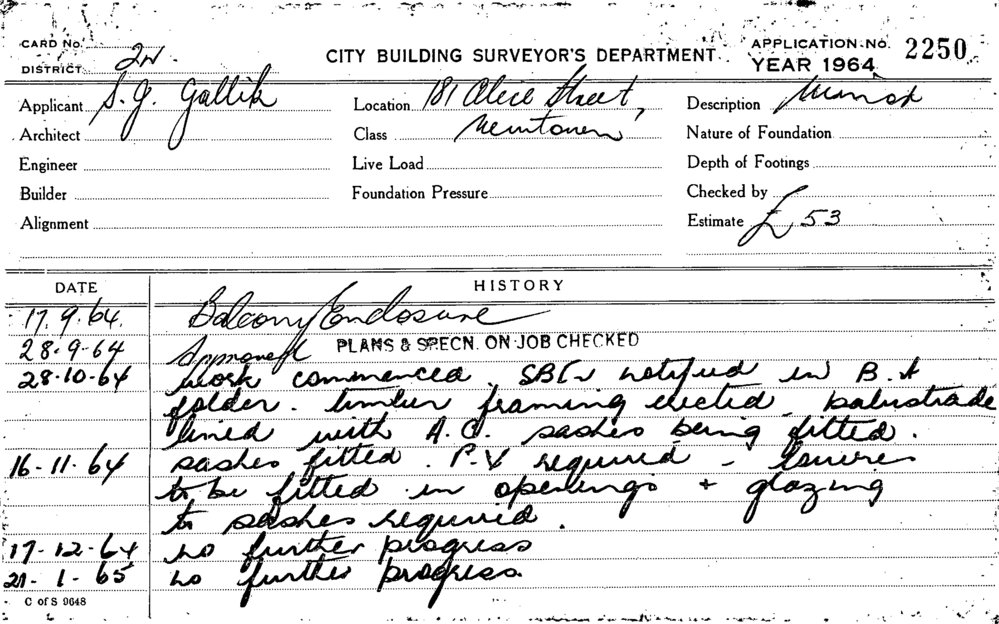 CARD No.
DISTRICT 2N.
CITY BUILDING SURVEYOR'S DEPARTMENT
APPLICATION No. 2250
YEAR 1964
Applicant S. J. Gallik
Location 181 Alice Street,
Description Minor
Architect
Class Newtown
Nature of Foundation
Engineer
Live Load
Depth of Footings
Builder
Foundation Pressure
Checked by
Alignment
Estimate £ 53
DATE HISTORY
17.9.64. Balcony Enclosure
28.9-64 Approved PLANS & SPECN. ON JOB CHECKED
28.10-64 work commenced. notified in B.A
folder. timber framing erected balustrade
lined with A.C. sashes being fitted.
16-11-64 sashes fitted. P.V required - louvres
to be fitted in openings + glazing
to sashes required.
17-12-64 no further progress
21-1-65 no further progress.
C of S 9648